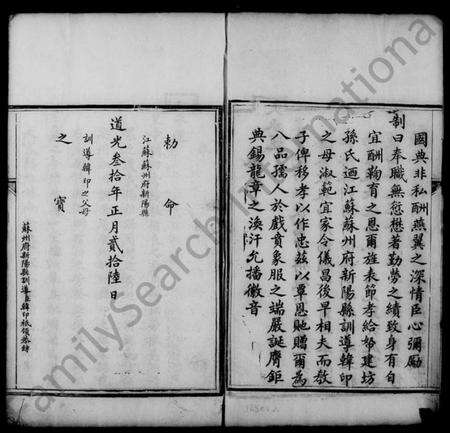 國典非私酬燕翼之深情臣心彌勵
制曰奉職無愆懋著勤勞之績致身有自
宜酬鞠育之恩爾旌表節孝給帑建坊
孫氏迺江蘇蘇州府新陽縣訓導韓印
之母淑範宜家令儀昌後早相夫而教
子俾移孝以作忠茲以覃恩貤贈爾為
八品孺人於戲賁象服之端嚴誕膺鉅
典錫龍章之渙汗允播徽音
勅命
江蘇蘇州府新陽縣
道光叁拾年正月貳拾陸日
訓導韓印之父母
之寶
蘇州府新陽縣訓導臣韓印祗領恭錄
FamilySearch International